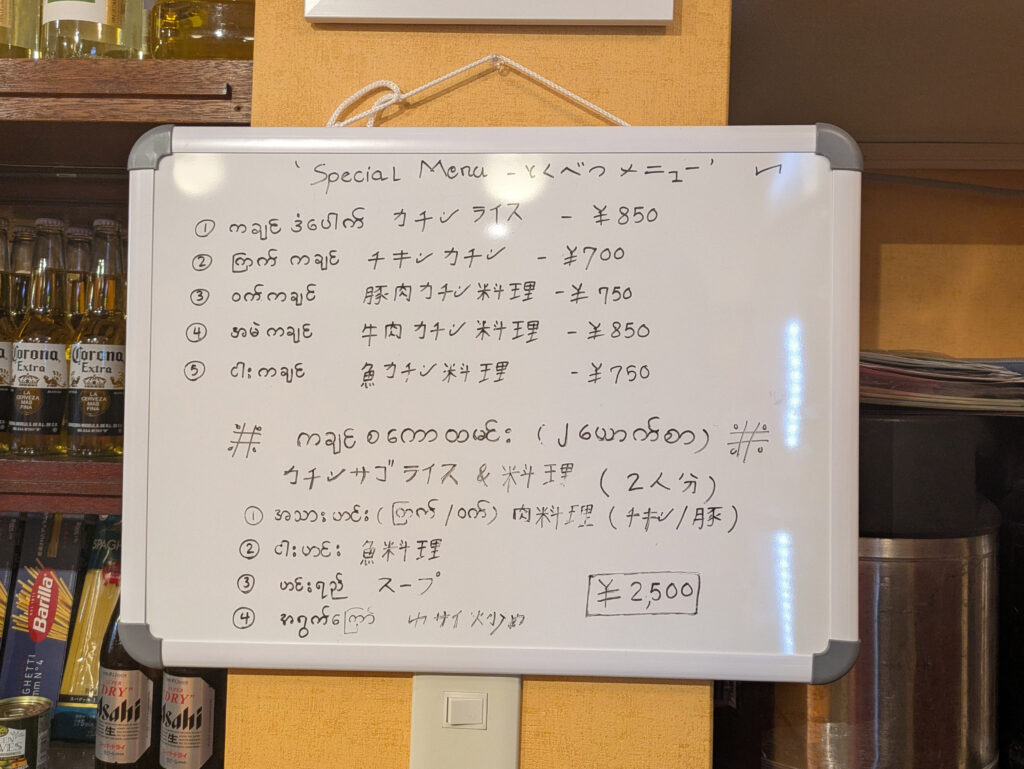 'Special Menu - とくべつ メニュー'
① ကချင် ဒံပေါက် カチン ライス - ¥850
② ကြက် ကချင် チキン カチン - ¥700
③ ဝက်ကချင် 豚肉カチン料理 - ¥750
④ အမဲကချင် 牛肉カチン料理 - ¥850
⑤ ငါးကချင် 魚カチン料理 - ¥750
ကချင်စကောထမင်း (၂ယောက်စာ)
カチンサゴライス & 料理 (2人分)
① အသားဟင်း (ကြက်/ဝက်) 肉料理 (チキン/豚)
② ငါးဟင်း 魚料理
③ ဟင်းရည် スープ
¥2,500
④ အရွက်ကြော် ヤサイ炒め
Corona
Extra
LA
CERVEZA
MAS
FINA
Corona
Extra
LA
CERVEZA
MAS
FINA
Barilla
SPAGHETTI
N°4
DRY
Asahi
生
DRY
Asahi
生